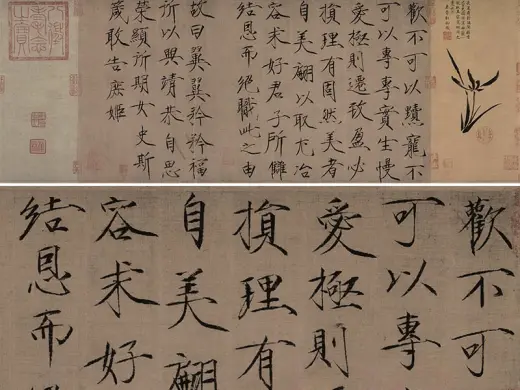 歡不可以黷寵不
可以專專實生慢
愛極則遷致盈必
損理有固然美者
自美翩以取尤冶
容求好君子所讎
結恩而絕職此之由
故曰翼翼矜矜福
所以興靖恭自思
榮顯所期女史斯
箴敢告庶姬
歡不可
可以專
愛極則
損理有
自美翩
容求好
結恩而